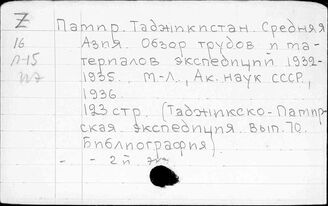 Z
16
П-15
Памир. Таджикистан. Средняя
Азия. Обзор трудов и ма-
териалов экспедиций 1932-
1935. М-Л., Ак. наук СССР,
1936.
123 стр. (Таджикско-Памир-
ская экспедиция. Вып. 70.
Библиография)
- - 2й эк